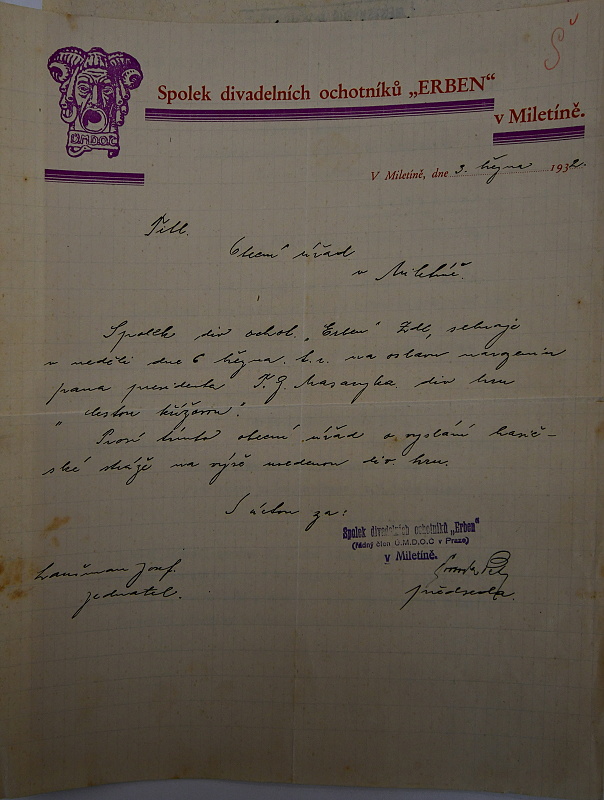 Š
Ú.M.D.O.C.
Spolek divadelních ochotníků „ERBEN“
v Miletíně.
V Miletíně, dne 3. března 1932.
Titl.
Obecní úřad
v Miletíně.
Spolek div ochot. „Erben" Zde, sehraje
v neděli dne 6 března t.r. na oslavu narozenin
pana presidenta T. G. Masaryka div hru
„Cestou křížovou".
Prosí tímto obecní úřad o vyslání hasič-
ské stráže na výše uvedenou div. hru.
S úctou za:
Spolek divadelních ochotníků „Erben"
(řádný člen Ú.M.D.O.C v Praze)
v Miletíně.
Josef.
jednatel.
předseda.